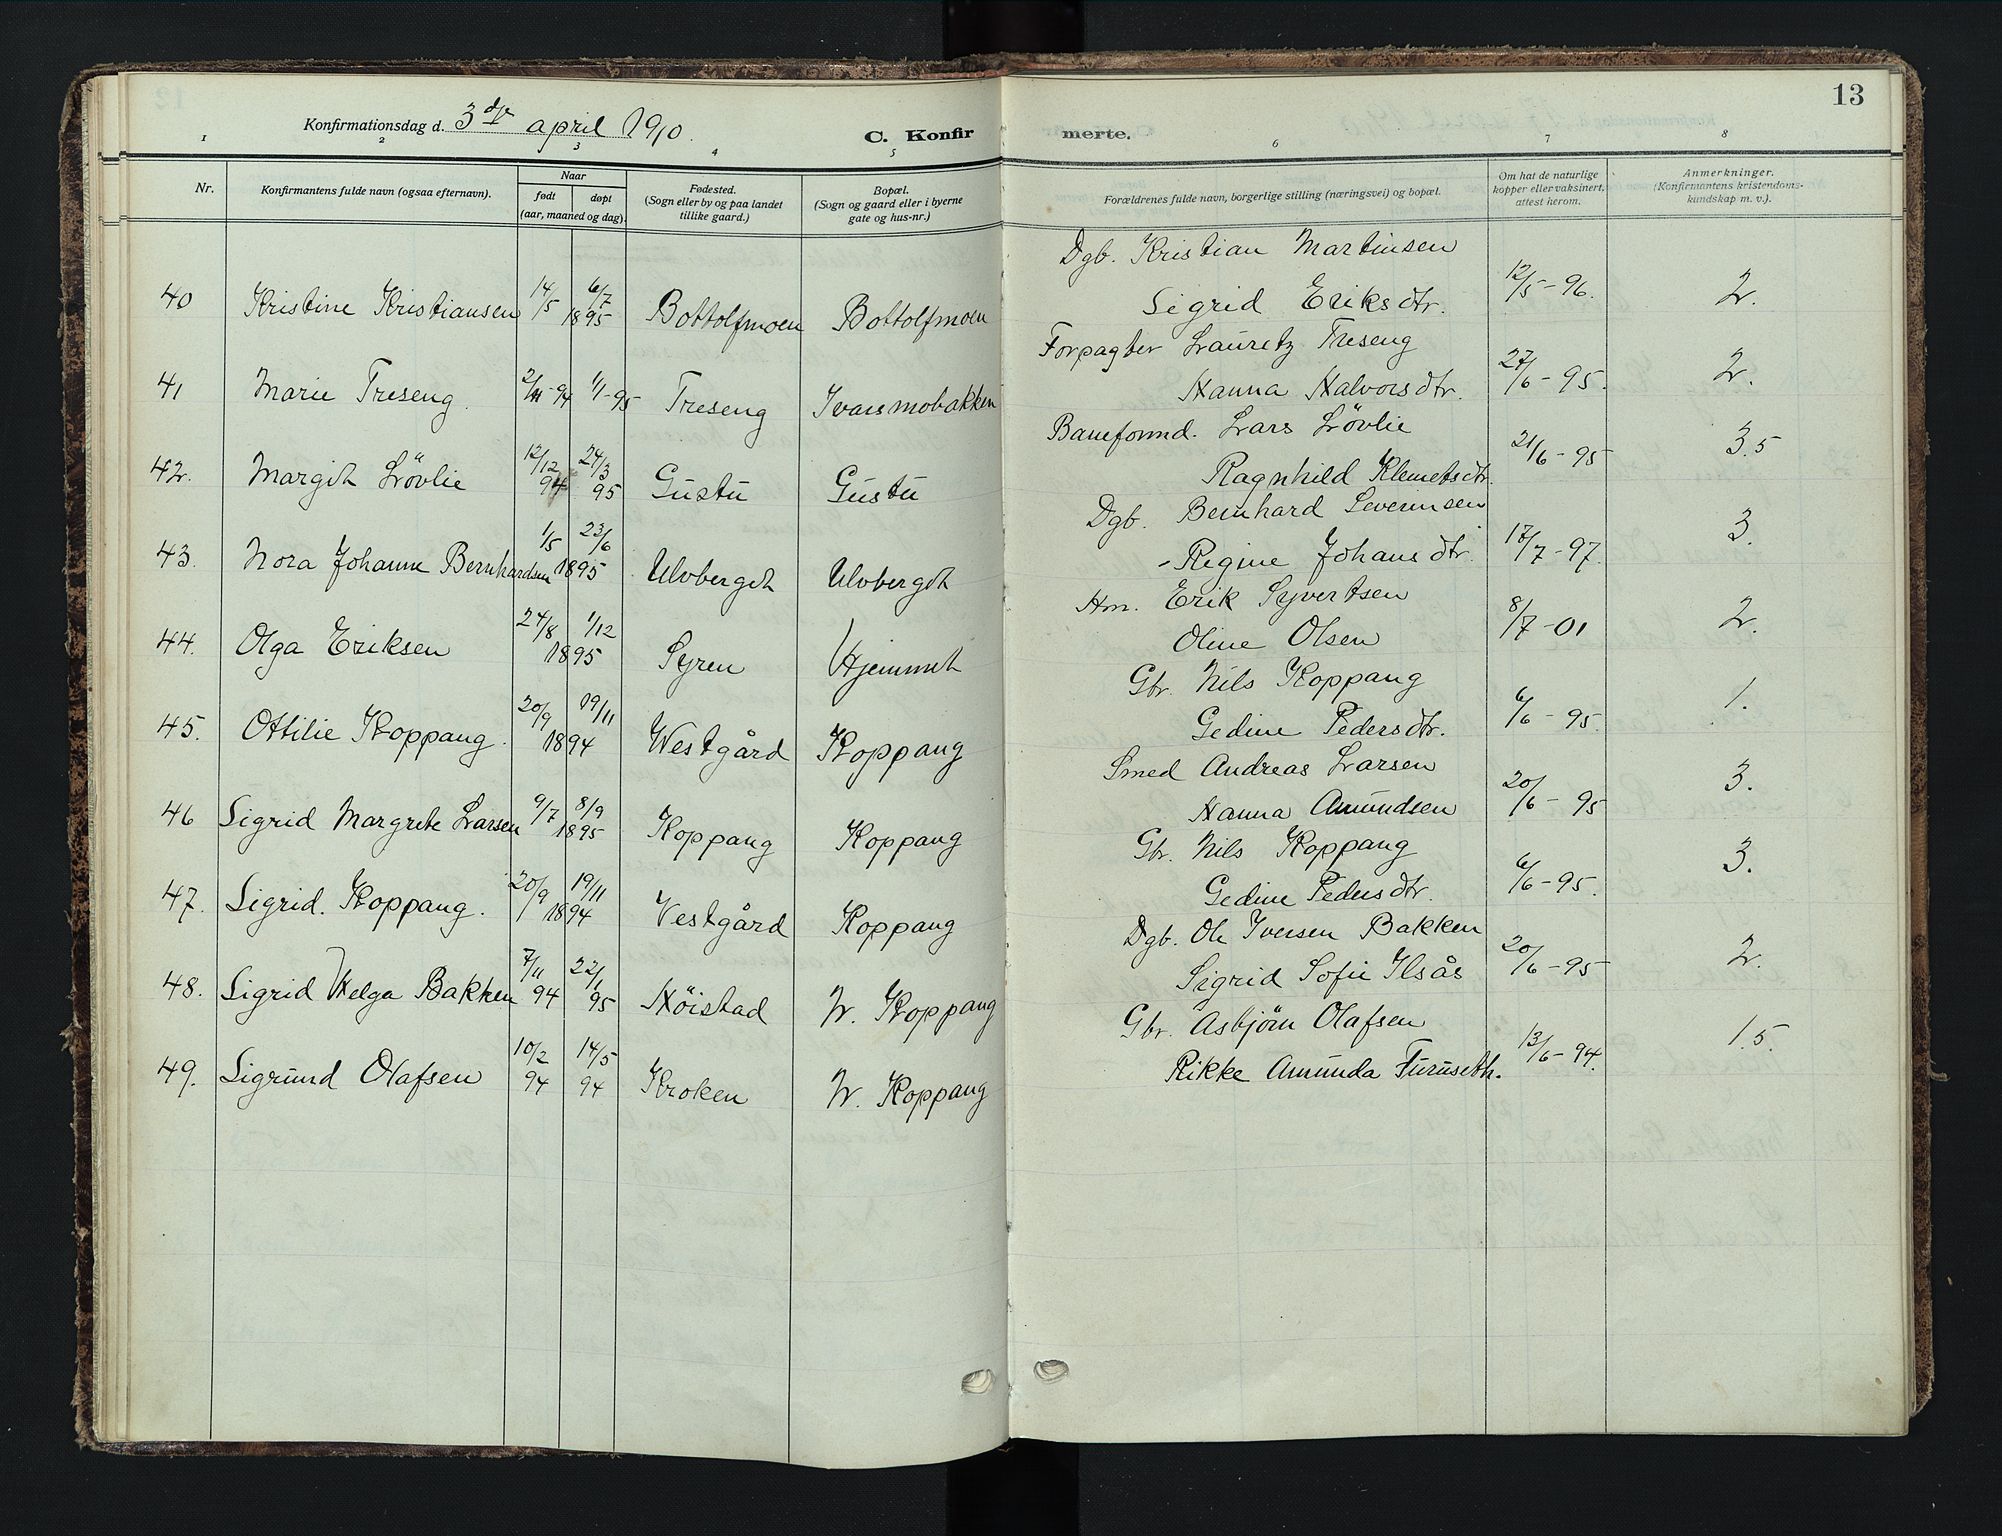 13
Konfirmationsdag d. 3die april 1910.
C. Konfirmerte.
1 2 3 4 5 6 7 8
Nr.
Konfirmantens fulde navn (ogsaa efternavn).
Naar
født døpt
(aar, maaned og dag).
Fødested.
(Sogn eller by og paa landet
tillike gaard.)
Bopæl.
(Sogn og gaard eller i byerne
gate og hus-nr.)
Forældrenes fulde navn, borgerlige stilling (næringsvei) og bopæl.
Om hat de naturlige
kopper eller vaksinert,
attest herom.
Anmerkninger.
(Konfirmantens kristendoms-
kundskap m. v.).
40 Kristine Kristiansen 14/5 6/7 1895 Bottolfmoen Bottolfmoen
Dgb. Kristian Martinsen
Sigrid Eriksdtr. 12/5-96. 2.
41 Marie Treseng 2/11-94 1/1-95 Treseng Ivarsmobakken
Forpagter Lauretz Treseng
Hanna Halvorsdtr. 27/6-95. 2.
42. Margit Løvlie 12/12 94 24/3 95 Gustu Gustu
Baneformd. Lars Løvlie
Ragnhild Klemetsdtr. 21/6-95 3.5
43. Nora Johanne Bernhardsen 1/5 23/6 1895 Ulvberget Ulvberget
Dgb. Bernhard Severinsen
- Regine Johansdtr. 17/7-97. 3.
44. Olga Eriksen 24/8 1/12 1895 Syren Hjemmet
Hm. Erik Syvertsen
Oline Olsen 8/7-01 2.
45. Ottilie Koppang. 20/9 19/11 1894 Westgård Koppang
Gbr. Nils Koppang
Gedine Pedersdtr. 6/6-95. 1.
46 Sigrid Margrete Larsen 9/7 8/9 1895 Koppang Koppang
Smed Andreas Larsen
Hanna Amundsen 20/6-95 3.
47. Sigrid. Koppang. 20/9 19/11 1894 Vestgård Koppang
Gbr. Nils Koppang
Gedine Pedersdtr. 6/6-95. 3.
48. Sigrid Helga Bakken 7/11 94 22/1 95 Høistad N. Koppang
Dgb. Ole Iversen Bakken
Sigrid Sofie Ilsås 20/6-95 2.
49. Sigrund Olafsen 10/2 94 14/5 94 Kroken N. Koppang
Gbr. Asbjørn Olafsen
Rikke Amunda Furuseth. 13/6-94. 1.5.